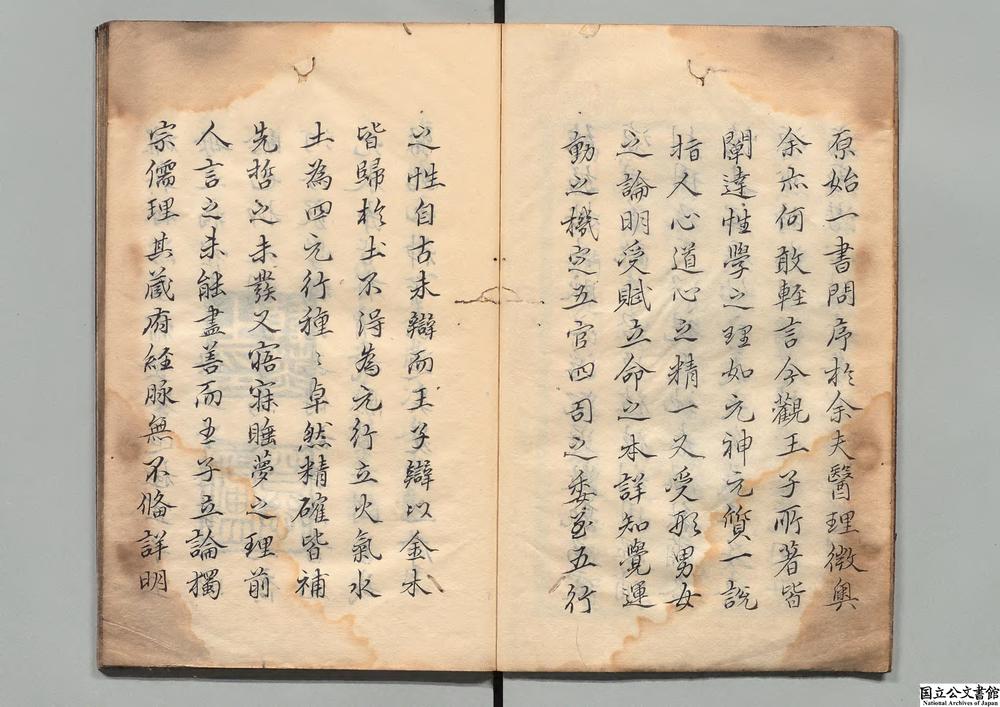 原始一書問序於余夫醫理微奧
余亦何敢輕言今觀王子所著皆
闡達性學之理如元神元質一說
指人心道心之精一又受形男女
之論明受賦立命之本詳知覺運
動之機定五官四司之委至五行
之性自古未辯而王子辯以金木
皆歸於土不得為元行立火氣水
土為四元行種〻卓然精確皆補
先哲之未發又寤寐睡夢之理前
人言之未能盡善而王子立論獨
宗儒理其藏府經脉無不俻詳明
国立公文書館
National Archives of Japan